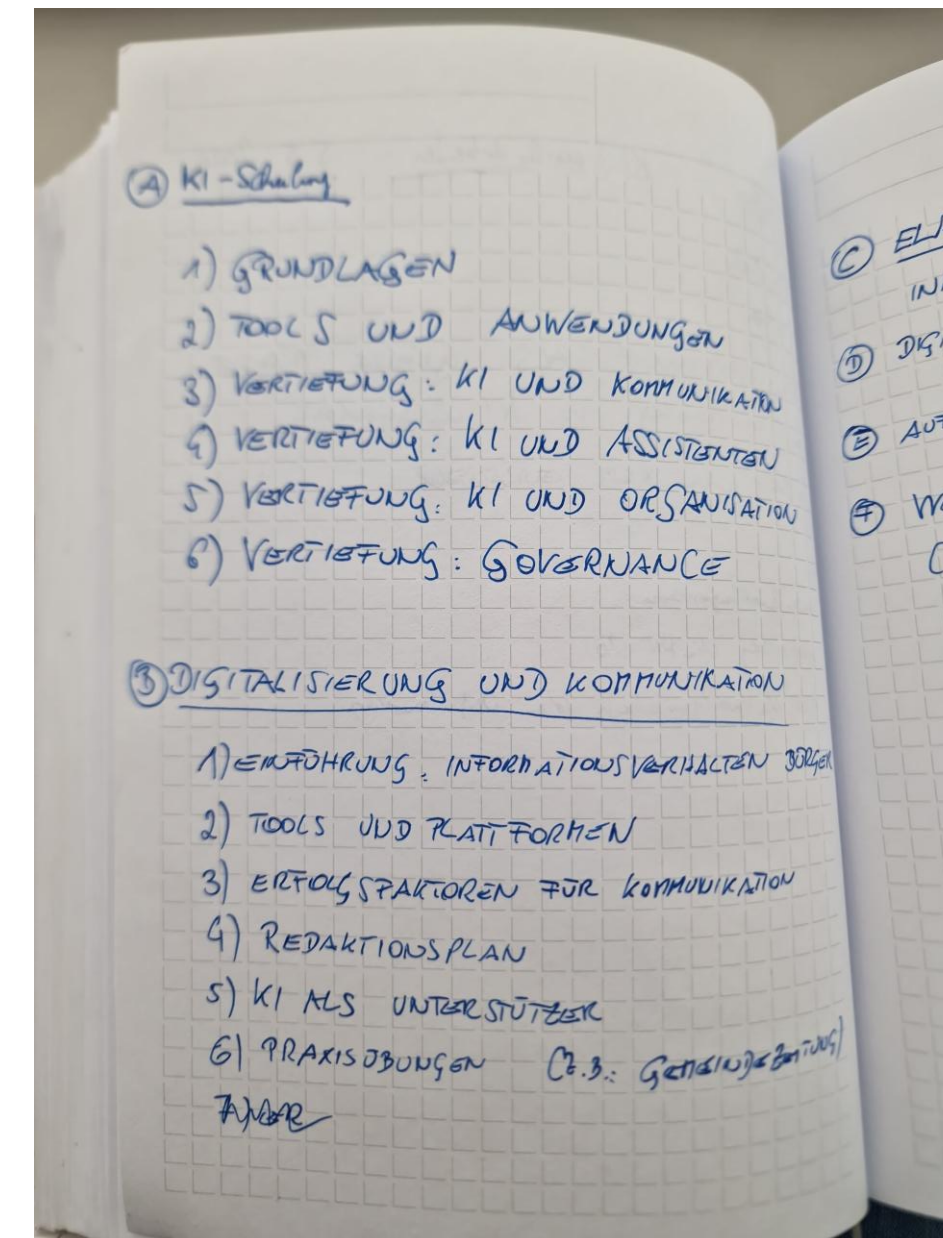 Ⓐ KI-Schulung
1) GRUNDLAGEN
2) TOOLS UND ANWENDUNGEN
3) VERTIEFUNG: KI UND KOMMUNIKATION
4) VERTIEFUNG: KI UND ASSISTENTEN
5) VERTIEFUNG: KI UND ORGANISATION
6) VERTIEFUNG: GOVERNANCE
Ⓑ DIGITALISIERUNG UND KOMMUNIKATION
1) EINFÜHRUNG: INFORMATIONSVERHALTEN BÜRGER
2) TOOLS UND PLATTFORMEN
3) ERFOLGSFAKTOREN FÜR KOMMUNIKATION
4) REDAKTIONSPLAN
5) KI ALS UNTERSTÜTZER
6) PRAXISÜBUNGEN (z.B.: GEMEINDEZEITUNG)
7)
Ⓒ
Ⓓ
Ⓔ
Ⓕ